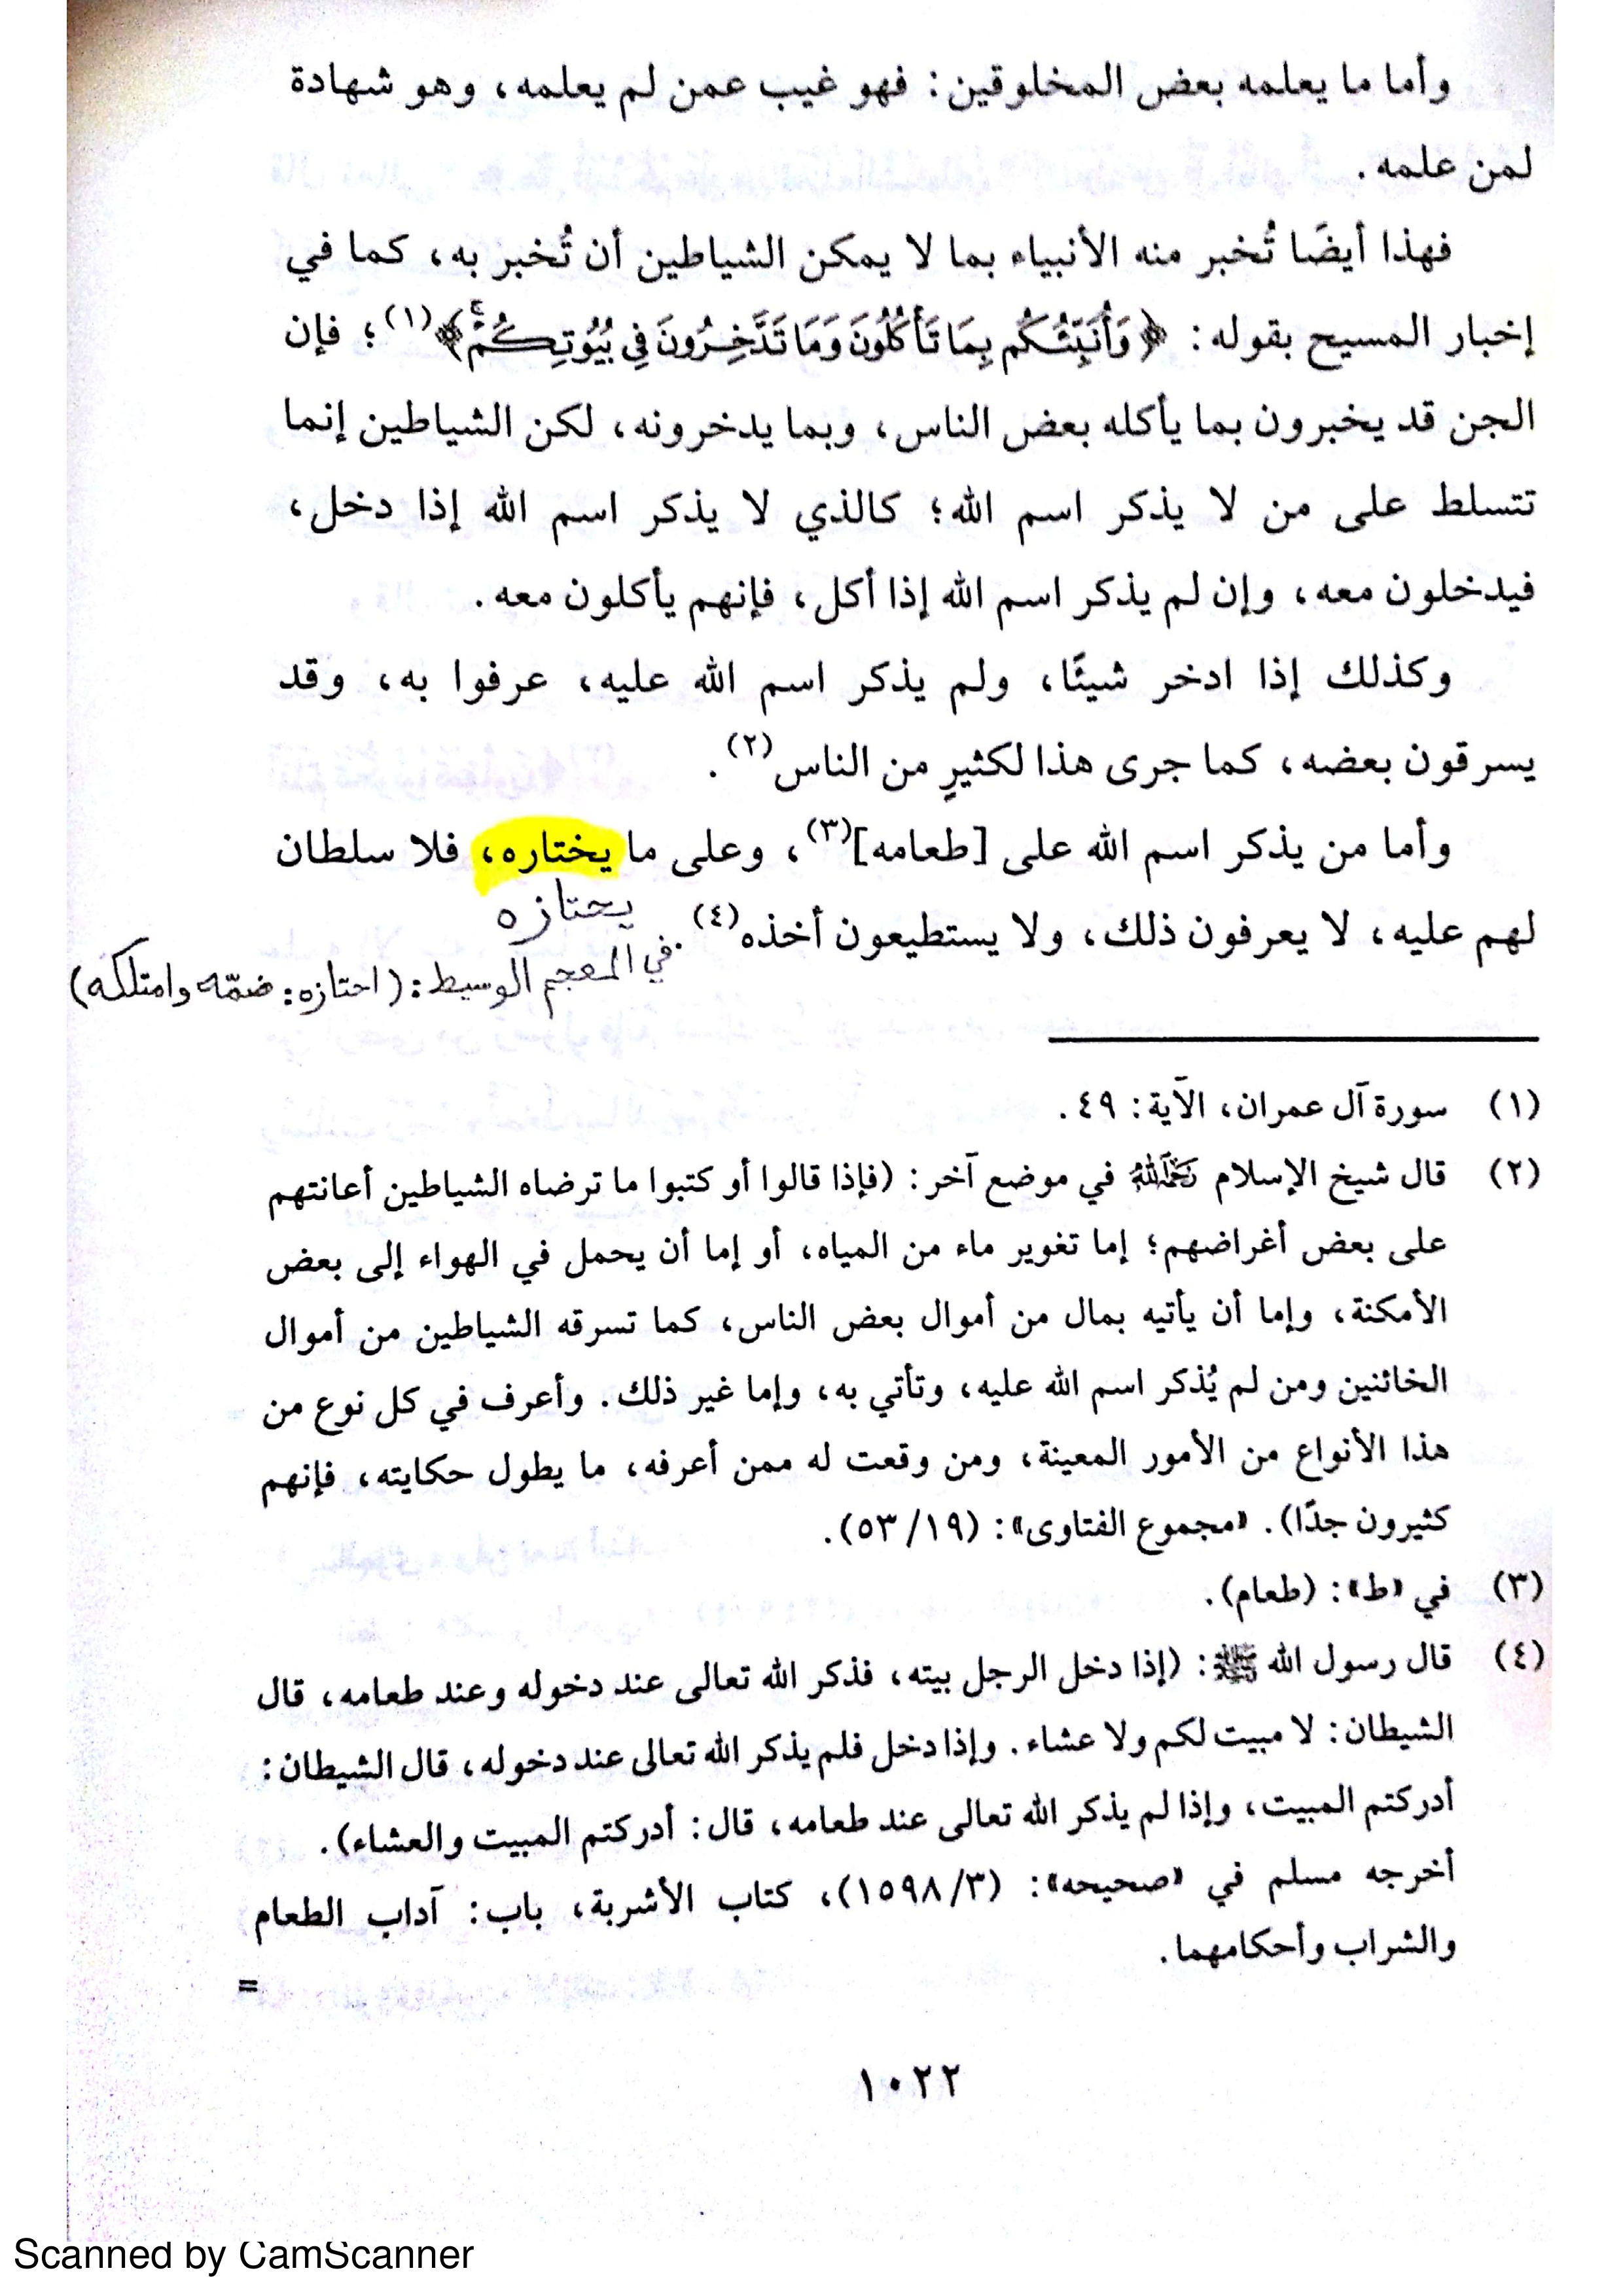 وأما ما يعلمه بعض المخلوقين: فهو غيب عمن لم يعلمه، وهو شهادة
لمن علمه.
فهذا أيضًا تُخبر منه الأنبياء بما لا يمكن الشياطين أن تُخبر به، كما في
إخبار المسيح بقوله: ﴿وَأُنَبِّئُكُم بِمَا تَأْكُلُونَ وَمَا تَدَّخِرُونَ فِي بُيُوتِكُمْ ۚ﴾(١)؛ فإن
الجن قد يخبرون بما يأكله بعض الناس، وبما يدخرونه، لكن الشياطين إنما
تتسلط على من لا يذكر اسم الله؛ كالذي لا يذكر اسم الله إذا دخل،
فيدخلون معه، وإن لم يذكر اسم الله إذا أكل، فإنهم يأكلون معه.
وكذلك إذا ادخر شيئًا، ولم يذكر اسم الله عليه، عرفوا به، وقد
يسرقون بعضه، كما جرى هذا لكثيرٍ من الناس(٢).
وأما من يذكر اسم الله على [طعامه](٣)، وعلى ما يختاره، فلا سلطان
يحتازه
لهم عليه، لا يعرفون ذلك، ولا يستطيعون أخذه(٤).
في المعجم الوسيط: (احتازه: ضمّه وامتلكه)
(١) سورة آل عمران، الآية: ٤٩.
(٢) قال شيخ الإسلام رَحِمَهُ اللهُ في موضع آخر: (فإذا قالوا أو كتبوا ما ترضاه الشياطين أعانتهم
على بعض أغراضهم؛ إما تغوير ماء من المياه، أو إما أن يحمل في الهواء إلى بعض
الأمكنة، وإما أن يأتيه بمال من أموال بعض الناس، كما تسرقه الشياطين من أموال
الخائنين ومن لم يُذكر اسم الله عليه، وتأتي به، وإما غير ذلك. وأعرف في كل نوع من
هذا الأنواع من الأمور المعينة، ومن وقعت له ممن أعرفه، ما يطول حكايته، فإنهم
كثيرون جدًا). «مجموع الفتاوى»: (١٩/ ٥٣).
(٣) في «ط»: (طعام).
(٤) قال رسول الله ﷺ: (إذا دخل الرجل بيته، فذكر الله تعالى عند دخوله وعند طعامه، قال
الشيطان: لا مبيت لكم ولا عشاء. وإذا دخل فلم يذكر الله تعالى عند دخوله، قال الشيطان:
أدركتم المبيت، وإذا لم يذكر الله تعالى عند طعامه، قال: أدركتم المبيت والعشاء).
أخرجه مسلم في «صحيحه»: (٣/ ١٥٩٨)، كتاب الأشربة، باب: آداب الطعام
والشراب وأحكامهما.
=
١٠٢٢
Scanned by CamScanner